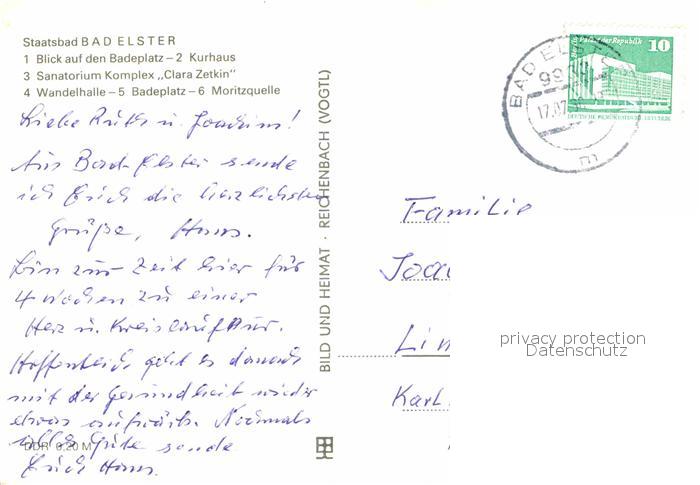 Staatsbad BAD ELSTER
1 Blick auf den Badeplatz – 2 Kurhaus
3 Sanatorium Komplex „Clara Zetkin"
4 Wandelhalle – 5 Badeplatz – 6 Moritzquelle
Liebe Ruth u. Joachim!
Aus Bad-Elster sende
ich Euch die herzlichsten
Grüße, Hans.
Bin zur Zeit hier für
4 Wochen zu einer
Herz u. Kreislaufkur.
Hoffentlich geht es danach
mit der Gesundheit wieder
etwas aufwärts. Nochmals
alles Gute sende
Euch Hans.
DDR 0.20 M
BILD UND HEIMAT · REICHENBACH (VOGTL)
BAD ELSTER
99
17.07
m
Palast der Republik 10
DEUTSCHE DEMOKRATISCHE REPUBLIK
Familie
Joa
Lin
Karl
privacy protection
Datenschutz